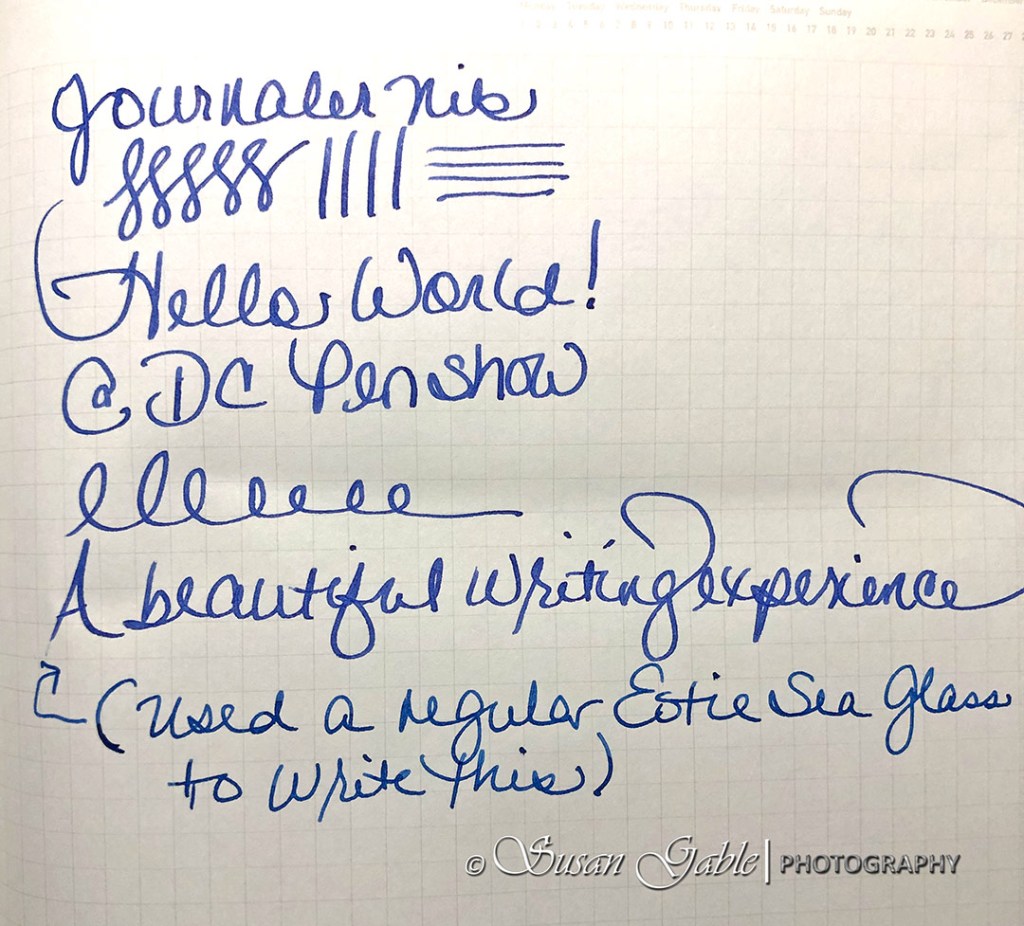 Monday Tuesday Wednesday Thursday Friday Saturday Sunday
3 4 5 6 7 8 9 10 11 12 13 14 15 16 17 18 19 20 21 22 23 24 25 26 27
Journaler nibs
Hello, World!
@ DC Penshow
A beautiful writing experience
(Used a regular Estie Sea Glass
to write this)
© Susan Gable | PHOTOGRAPHY